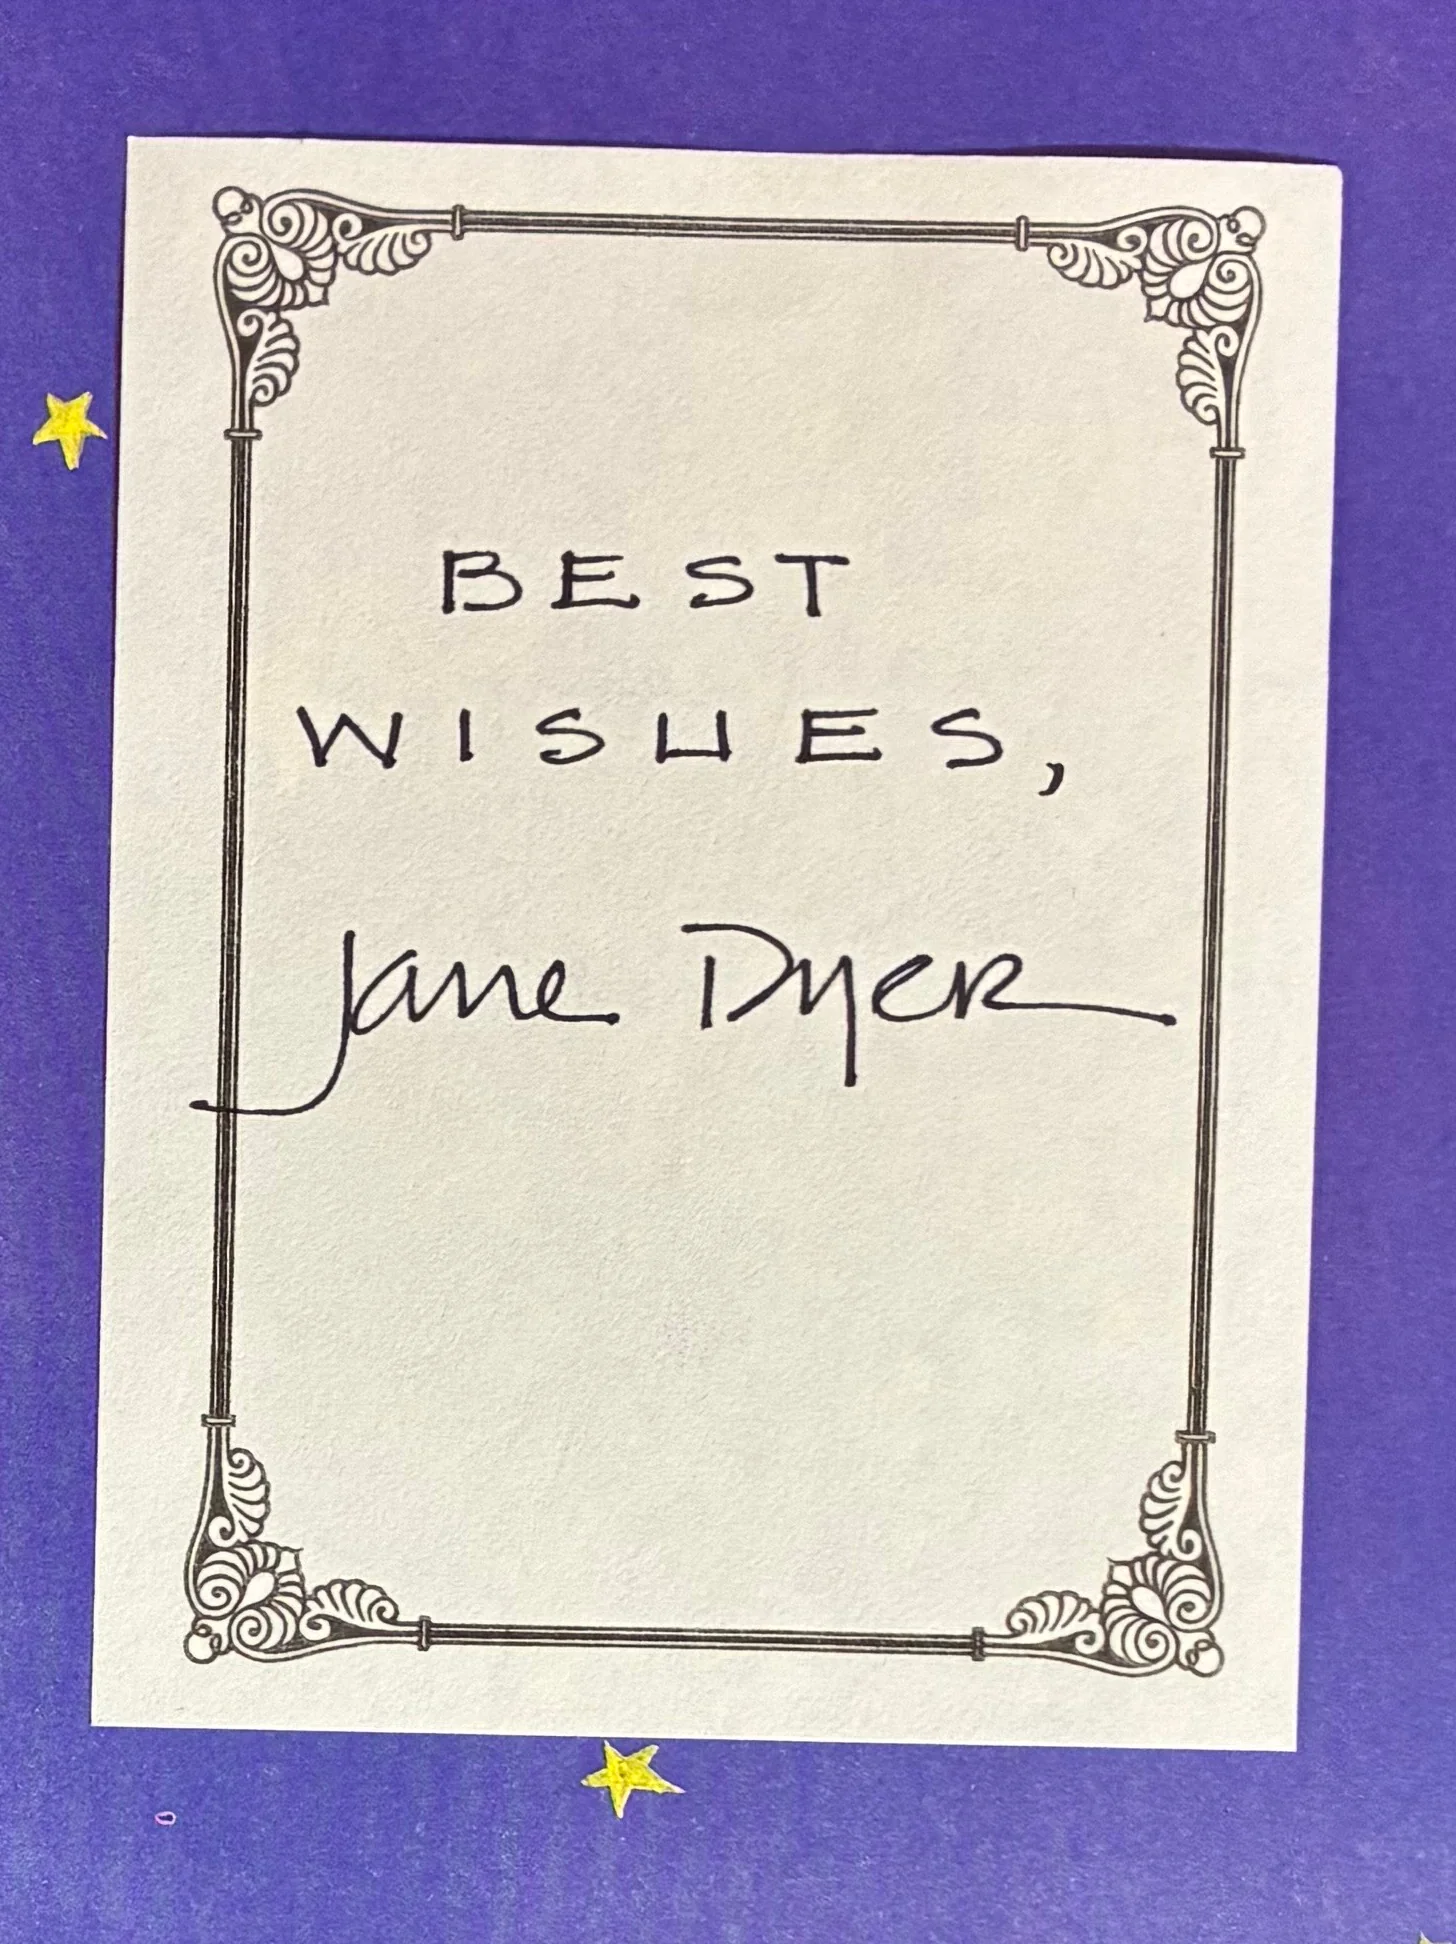 BEST
WISHES,
Jane Dyer